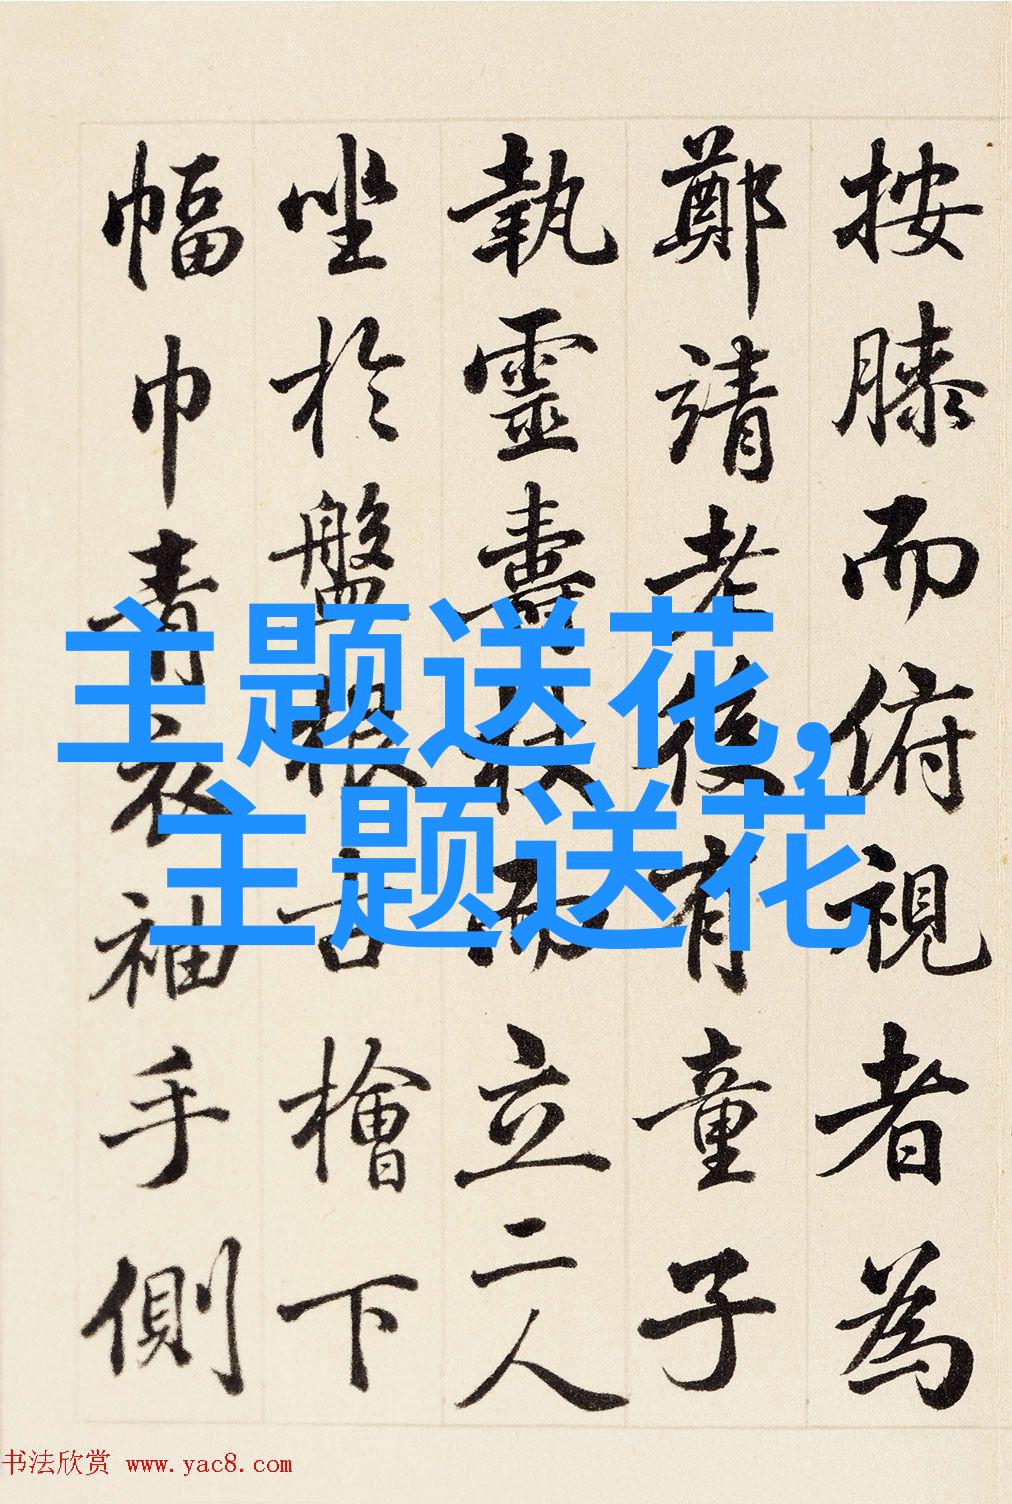 按膝而俯視者為
鄭靖老後有童子
執靈壽杖而立二人
坐於盤根古檜下
幅巾青衣袖手側
主题送花,
主题送花
书法欣赏 www.yac8.com